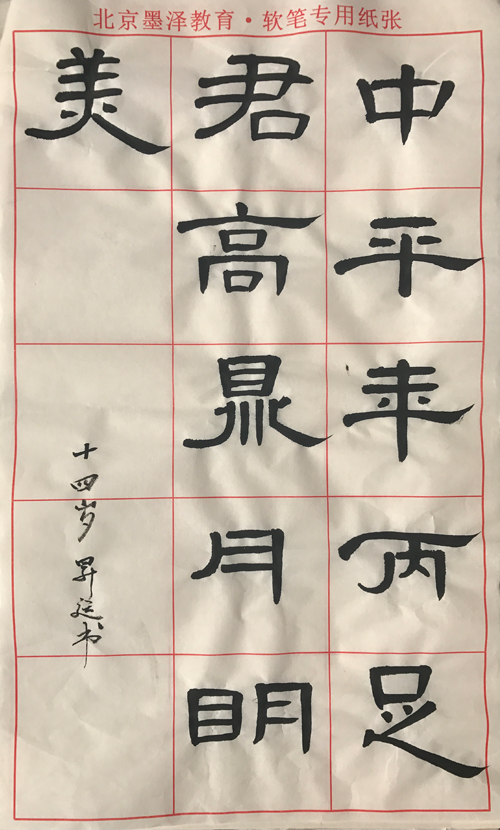 北京墨泽教育·软笔专用纸张
中平年丙足
君高鼎月明
美
十四岁 昇书